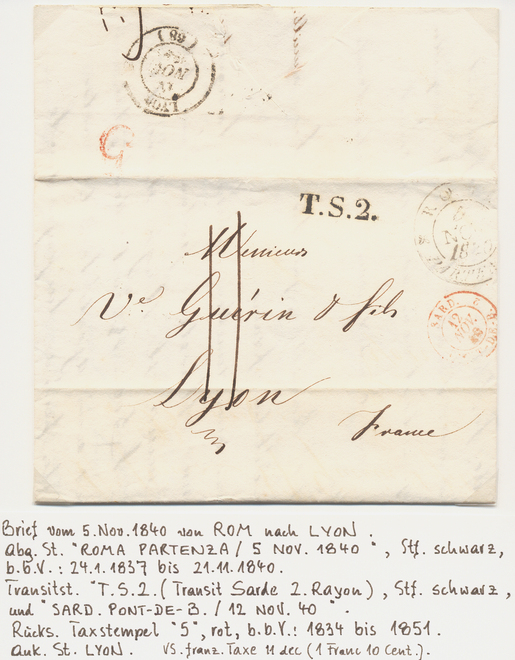 (68)
NOV
LYON
T.S.2.
SARD.
12
NOV.
40
Messieurs
Ve Guérin & fils
Lyon
France
Brief vom 5. Nov. 1840 von ROM nach LYON.
Abg. St. "ROMA PARTENZA / 5 NOV. 1840", Stf. schwarz,
b.b.V.: 24.1.1837 bis 21.11.1840.
Transitst. "T.S.2. (Transit Sarde 2. Rayon), Stf. schwarz,
und "SARD. PONT-DE-B. / 12 NOV. 40".
Rücks. Taxstempel "5", rot, b.b.V.: 1834 bis 1851.
Ank. St. LYON. VS. franz. Taxe 11 dec (1 Franc 10 Cent.).